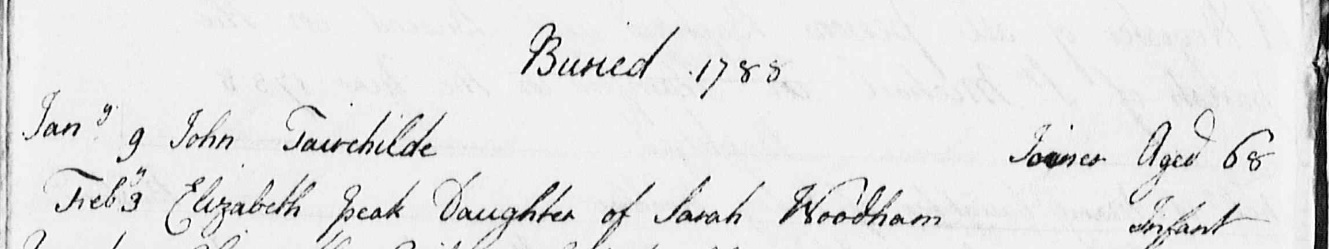 Buried 1788
Jany 9 John Fairchilde Joiner Aged 68
Feby 3 Elizabeth Peak Daughter of Sarah Woodham Infant